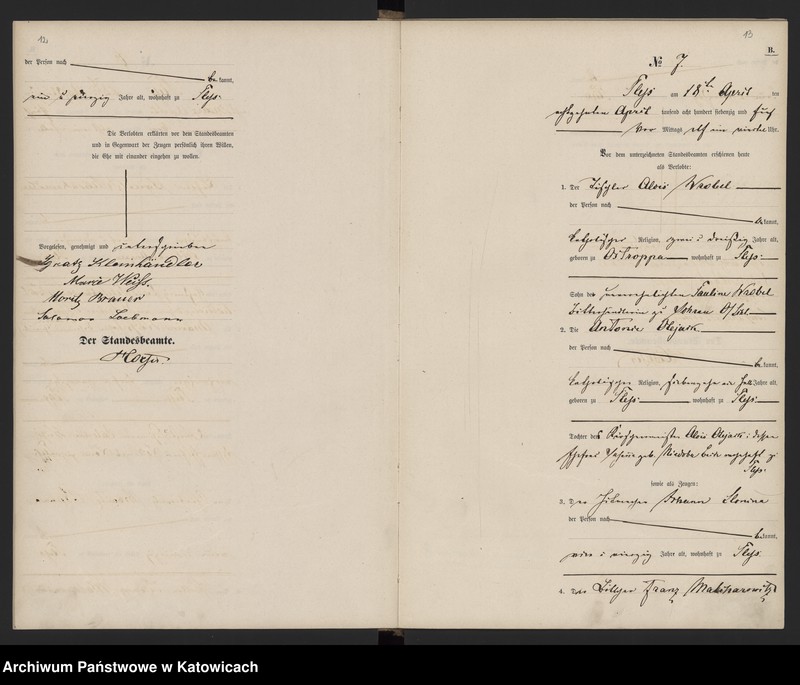 12
der Person nach
be kannt,
ein u zwanzig Jahre alt, wohnhaft zu Pleß.
Die Verlobten erklärten vor dem Standesbeamten
und in Gegenwart der Zeugen persönlich ihren Willen,
die Ehe mit einander eingehen zu wollen.
Vorgelesen, genehmigt und unterschrieben
Ignatz Kleinhändler
Marie Weiss.
Moritz Brauer
Salomon Loebmann
Der Standesbeamte.
13
B.
№ 7.
Pleß am 18ten April ten
achtzehnten April tausend acht hundert siebenzig und fünf
Vor Mittags elf ein viertel Uhr.
Vor dem unterzeichneten Standesbeamten erschienen heute
als Verlobte:
1. Der Tischler Alois Wrobel
der Person nach
be kannt,
katholischer Religion, zwei u dreißig Jahre alt,
geboren zu Ostroppa wohnhaft zu Pleß
Sohn der unverehelichten Pauline Wrobel
zu Sohrau O/Schl.
2. Die Antonie Olejask
der Person nach
be kannt,
katholischer Religion, siebenzehn ein halb Jahre alt,
geboren zu Pleß wohnhaft zu Pleß
Tochter des Alois Olejask u dessen
Ehefrau geb. zu
Pleß.
sowie als Zeugen:
3. Der Johann Slonina
der Person nach
be kannt,
vier u vierzig Jahre alt, wohnhaft zu Pleß
4. Der Böttcher Franz
Archiwum Państwowe w Katowicach